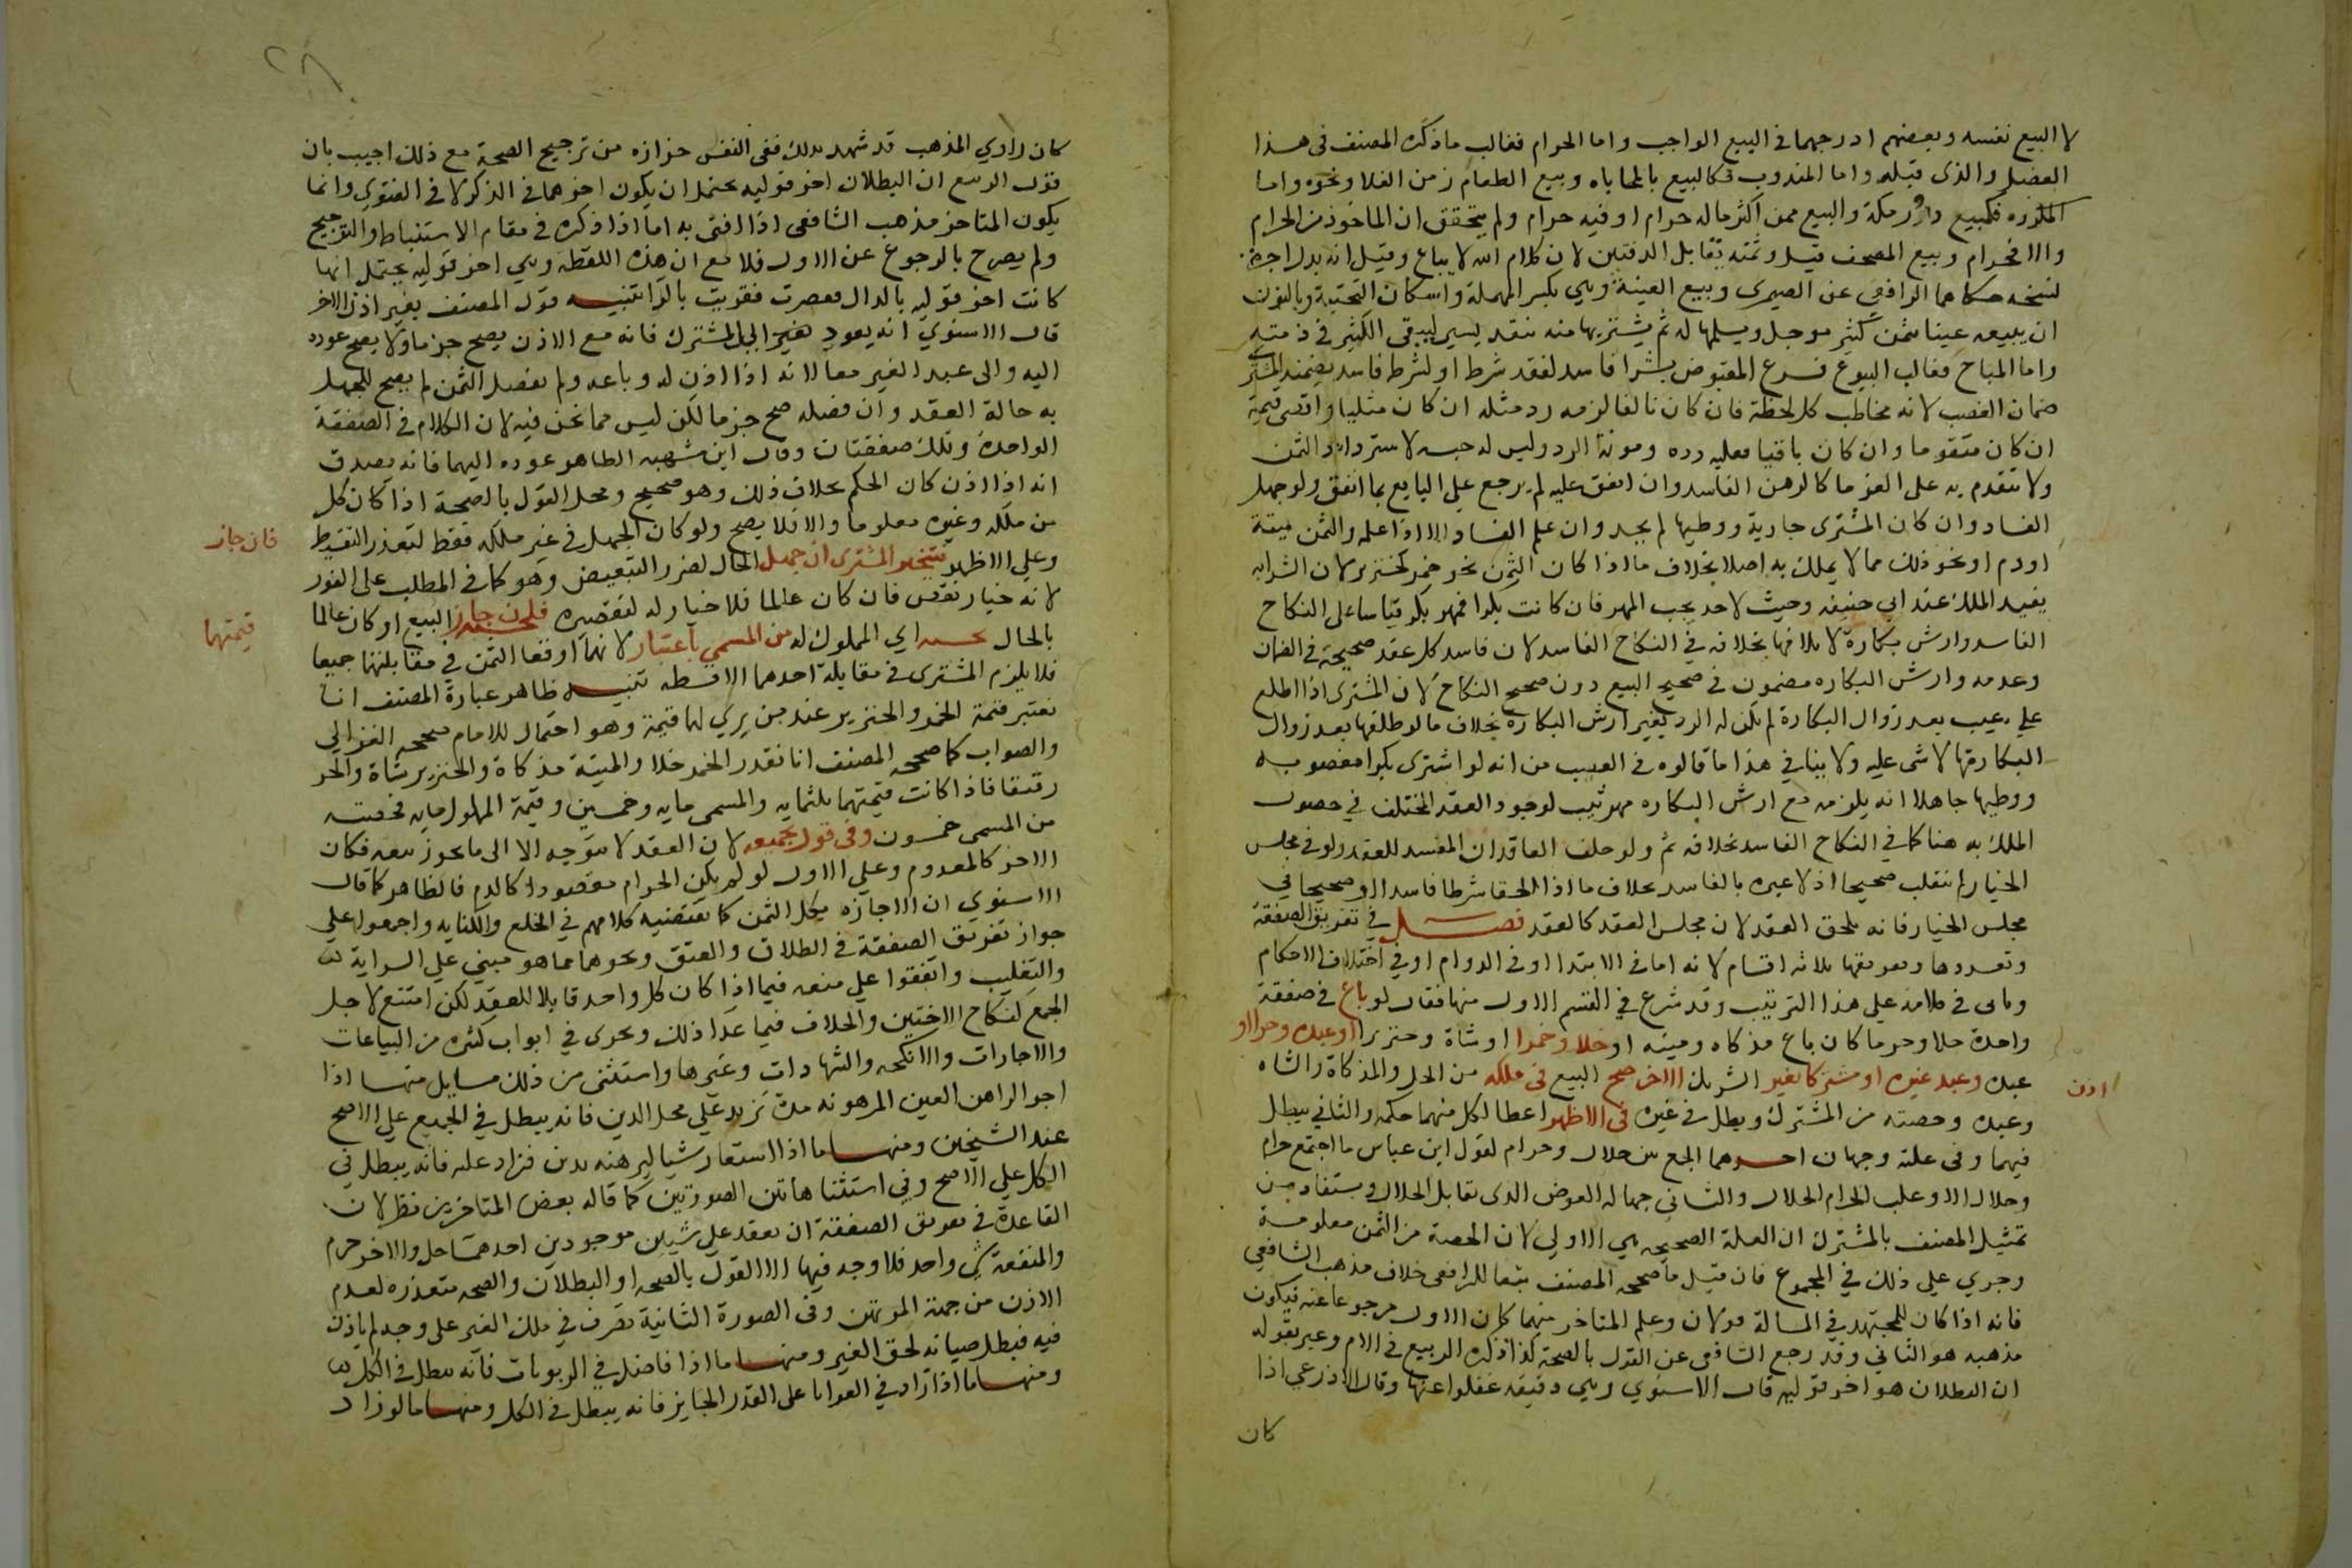 لا البيع نفسه وبعضهم ادرجهما في البيع الواجب واما الحرام فغالب ما ذكره المصنف في هذا
الفصل والذي قبله واما المندوب فكالبيع بالمحاباه وبيع الطعام زمن الغلا ونحوه واما
المكروه فكبيع دور مكة والبيع ممن اكثر ماله حرام او فيه حرام ولم يتحقق ان الماخوذ من الحرام
والا فحرام وبيع المصحف قيل وثمنه يقابل الدفتين لان كلام الله لا يباع وقيل انه بدل اجرة
نسخه حكاهما الرافعي عن الصيمرى وبيع العينة وهي بكسر المهملة واسكان التحتية وبالنون
ان يبيعه عينا بثمن كثير موجل ويسلمها له ثم يشتريها منه بنقد يسير ليبقى الكثير في ذمته
واما المباح فغالب البيوع فرع المقبوض بشرا فاسد لفقد شرط او لشرط فاسد يضمنه المشتري
ضمان الغصب لانه مخاطب كل لحظة فان كان تالفا لزمه رد مثله ان كان مثليا واقصى قيمة
ان كان متقوما وان كان باقيا فعليه رده ومونة الرد وليس له حبسه لاسترداد الثمن
ولا يتقدم به على الغرما كالرهن الفاسد وان انفق عليه لم يرجع على البايع بما انفق ولو جهل
الفساد وان كان المشترى جارية ووطيها لم يحد وان علم الفساد الا اذا علم والثمن ميتة
او دم او نحو ذلك مما لا يملك به اصلا بخلاف ما اذا كان الثمن نحو خمر كخنزير لان الشرا به
يفيد الملك عند ابي حنيفه وحيث لا حد يجب المهر فان كانت بكرا فمهر بكر قياسا على النكاح
الفاسد وارش بكارة لاتلافها بخلافه في النكاح الفاسد لان فاسد كل عقد كصحيحه في الضمان
وعدمه وارش البكاره مضمون في صحيح البيع دون صحيح النكاح لان المشترى اذا اطلع
على عيب بعد زوال البكارة لم يكن له الرد بغير ارش البكارة بخلاف ما لو طلقها بعد زوال
البكارة لا شى عليه ولا ينافي هذا ما قالوه في الغصب من انه لو اشترى بكرا مغصوبه
ووطيها جاهلا انه يلزمه مع ارش البكاره مهر ثيب لوجود العقد المختلف في حصول
الملك به هنا كما في النكاح الفاسد بخلافه ثم ولو حذف العاقدان المفسد للعقد ولو في مجلس
الخيار لم ينقلب صحيحا اذ لا عبرة بالفاسد بخلاف ما اذا الحقا شرطا فاسدا او صحيحا في
مجلس الخيار فانه يلحق العقد لان مجلس العقد كالعقد فصل في تفريق الصفقة
وتعددها وتفريقها ثلاثه اقسام لانه اما في الابتدا او في الدوام او في اختلاف الاحكام
وياتى في كلامه على هذا الترتيب وقد شرع في القسم الاول منها فقال لو باع في صفقة
واحدة حلا وحرما كان باع مذكاه وميته او خلا وخمرا او شاة وخنزيرا او عبده وحرا او
عبده وعبد غيره او مشتركا بغير اذن الشريك الاخر صح البيع في ملكه من الخل والمذكاة والشاه
وعبده وحصته من المشترك وبطل في غيره في الاظهر اعطا لكل منهما حكمه والثاني يبطل
فيهما وفي علته وجهان احدهما الجمع بين حلال وحرام لقول ابن عباس ما اجتمع حرام
وحلال الا وغلب الحرام الحلال والثاني جهالة العوض الذى يقابل الحلال ويستفاد من
تمثيل المصنف بالمشترك ان العلة الصحيحه هي الاولى لان الحصة من الثمن معلومة
وجرى على ذلك في المجموع فان قيل ما صححه المصنف تبعا للرافعى خلاف مذهب الشافعي
فانه اذا كان للمجتهد في المسالة قولان وعلم المتاخر منهما كان الاول مرجوعا عنه فيكون
مذهبه هو الثاني وقد رجع الشافعي عن القول بالصحة كذا ذكره الربيع في الام وعبر بقوله
ان البطلان هو اخر قوليه قال الاسنوي وهي دقيقه غفلوا عنها وقال الاذرعي اذا
كان
كان راوي المذهب قد شهد بذلك ففى النفس حزازه من ترجيح الصحة مع ذلك اجيب بان
قول الربيع ان البطلان اخر قوليه يحتمل ان يكون اخرهما في الذكر لا في الفتوى وانما
يكون المتاخر مذهب الشافعي اذا افتى به اما اذا ذكره في مقام الاستنباط والترجيح
ولم يصرح بالرجوع عن الاول فلا مع ان هذه اللفظه وهي اخر قوليه يحتمل انها
كانت احد قوليه بالدال فقصرت فقريت بالرا تنبيه قول المصنف بغير اذن الاخر
قال الاسنوي انه يعود بغير الى المشترك فانه مع الاذن يصح جزما ولا يصح عوده
اليه والى عبد الغير معا لانه اذا اذن له وباعه ولم يفصل الثمن لم يصح للجهل
به حالة العقد وان فصله صح جزما لكن ليس مما نحن فيه لان الكلام في الصفقة
الواحدة وتلك صفقتان وقال ابن شهبه الظاهر عوده اليهما فانه يصدق
انه اذا اذن كان الحكم بخلاف ذلك وهو صحيح ومحل القول بالصحة اذا كان كل
من ملكه وغيره معلوما والا فلا يصح ولو كان الجهل في غير ملكه فقط لتعذر التقسيط
وعلى الاظهر فيتخير المشترى ان جهل الحال لضرر التبعيض وهو كما في المطلب على الفور
لانه خيار نقص فان كان عالما فلا خيار له لتقصيره فان جاز البيع او كان عالما
بالحال بحصته اي المملوك له من المسمى باعتبار قيمتها لانهما اوقعا الثمن في مقابلتهما جميعا
فلا يلزم المشترى في مقابلة احدهما الا قسطه تنبيه ظاهر عبارة المصنف انا
نعتبر قيمة الخمر والخنزير عند من يرى لها قيمة وهو احتمال للامام صححه الغزالي
والصواب كما صححه المصنف انا نقدر الخمر خلا والميتة مذكاة والخنزير شاة والحر
رقيقا فاذا كانت قيمتهما ثلثمايه والمسمى مايه وخمسين وقيمة المملوك مايه فحصته
من المسمى خمسون وفي قول بجميعه لان العقد لا يتوجه الا الى ما يجوز بيعه فكان
الاخر كالمعدوم وعلى الاول لو لم يكن الحرام مقصودا كالدم فالظاهر كما قال
الاسنوي ان الاجازه بكل الثمن كما يقتضيه كلامهم في الخلع والكنايه واجمعوا على
جواز تفريق الصفقة في الطلاق والعتق ونحوهما مما هو مبني على السراية
والتغليب واتفقوا على منعه فيما اذا كان كل واحد قابلا للعقد لكن امتنع لاجل
الجمع كنكاح الاختين والخلاف فيما عدا ذلك ويجرى في ابواب كثيره من البياعات
والاجارات والانكحه والشهادات وغيرها واستثنى من ذلك مسايل منها اذا
اجر الراهن العين المرهونه مدة تزيد على محل الدين فانه يبطل في الجميع على الاصح
عند الشيخين ومنها ما اذا استعار شيا ليرهنه بدين فزاد عليه فانه يبطل في
الكل على الاصح وفي استثنا هاتين الصورتين كما قاله بعض المتاخرين نظر لان
القاعدة في تفريق الصفقة ان يعقد على شيئين موجودين احدهما حل والاخر حرم
والمنفعة شي واحد فلا وجه فيها الا القول بالصحه او البطلان والصحه متعذره لعدم
الاذن من جهة المرتهن وفي الصورة الثانية تصرف في ملك الغير على وجه لم ياذن
فيه فبطل صيانة لحق الغير ومنها ما اذا فاضل في الربويات فانه يبطل في الكل
ومنها ما اذا زاد في العرايا على القدر الجايز فانه يبطل في الكل ومنها ما لو زاد
فان جاز
قيمتها
اذن